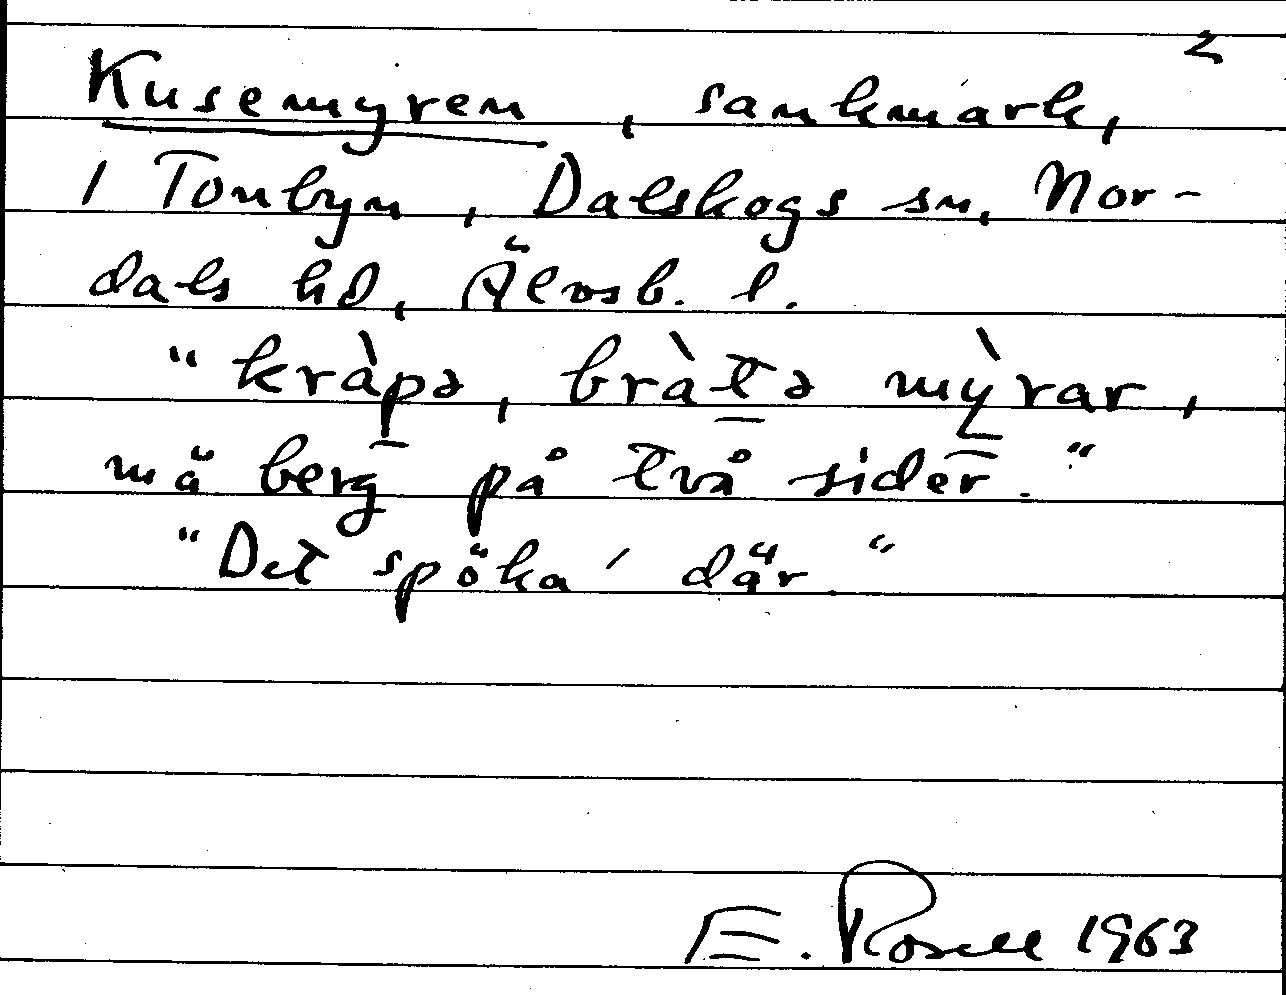 2
Kusemyren, sankmark,
1 Tonbyn, Dalskogs sn, Nor-
dals hd, Älvsb. l.
"kràpə, bràtə mỳrar,
mä berg på två sider."
"Det spöka' där."
E. Rosell 1963